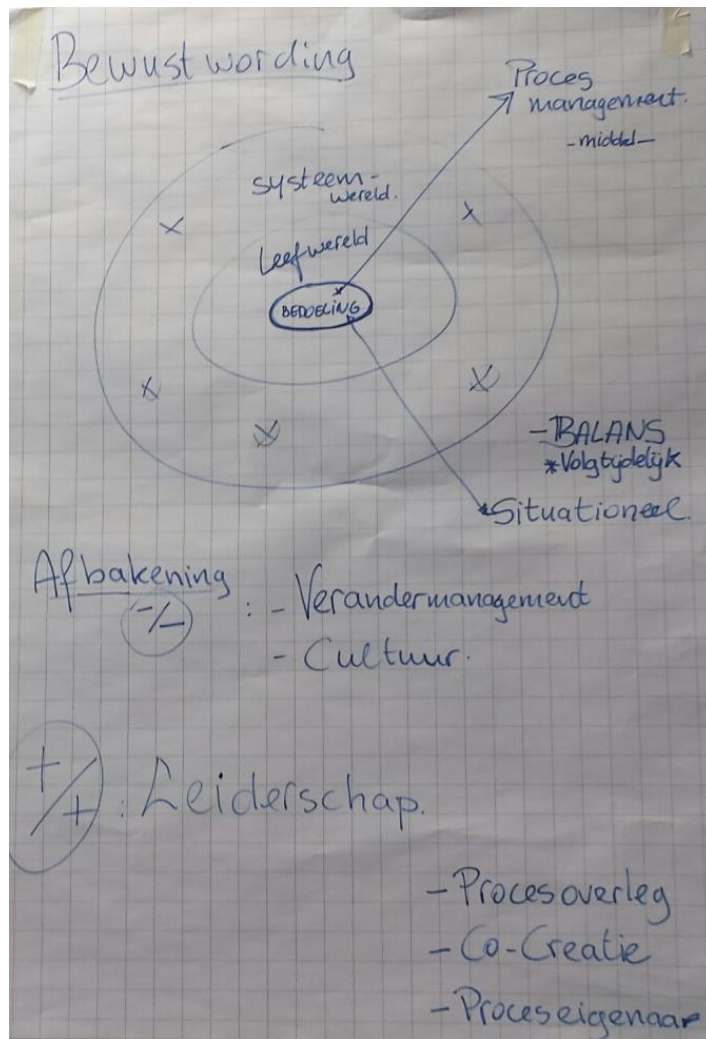 Bewustwording
Proces
management.
-middel-
systeem-
wereld.
Leefwereld
BEDOELING
-BALANS
*Volgtijdelijk
*Situationeel.
Afbakening
-/- : - Verandermanagement
- Cultuur.
+/+ : Leiderschap.
- Procesoverleg
- Co-Creatie
- Proceseigenaar